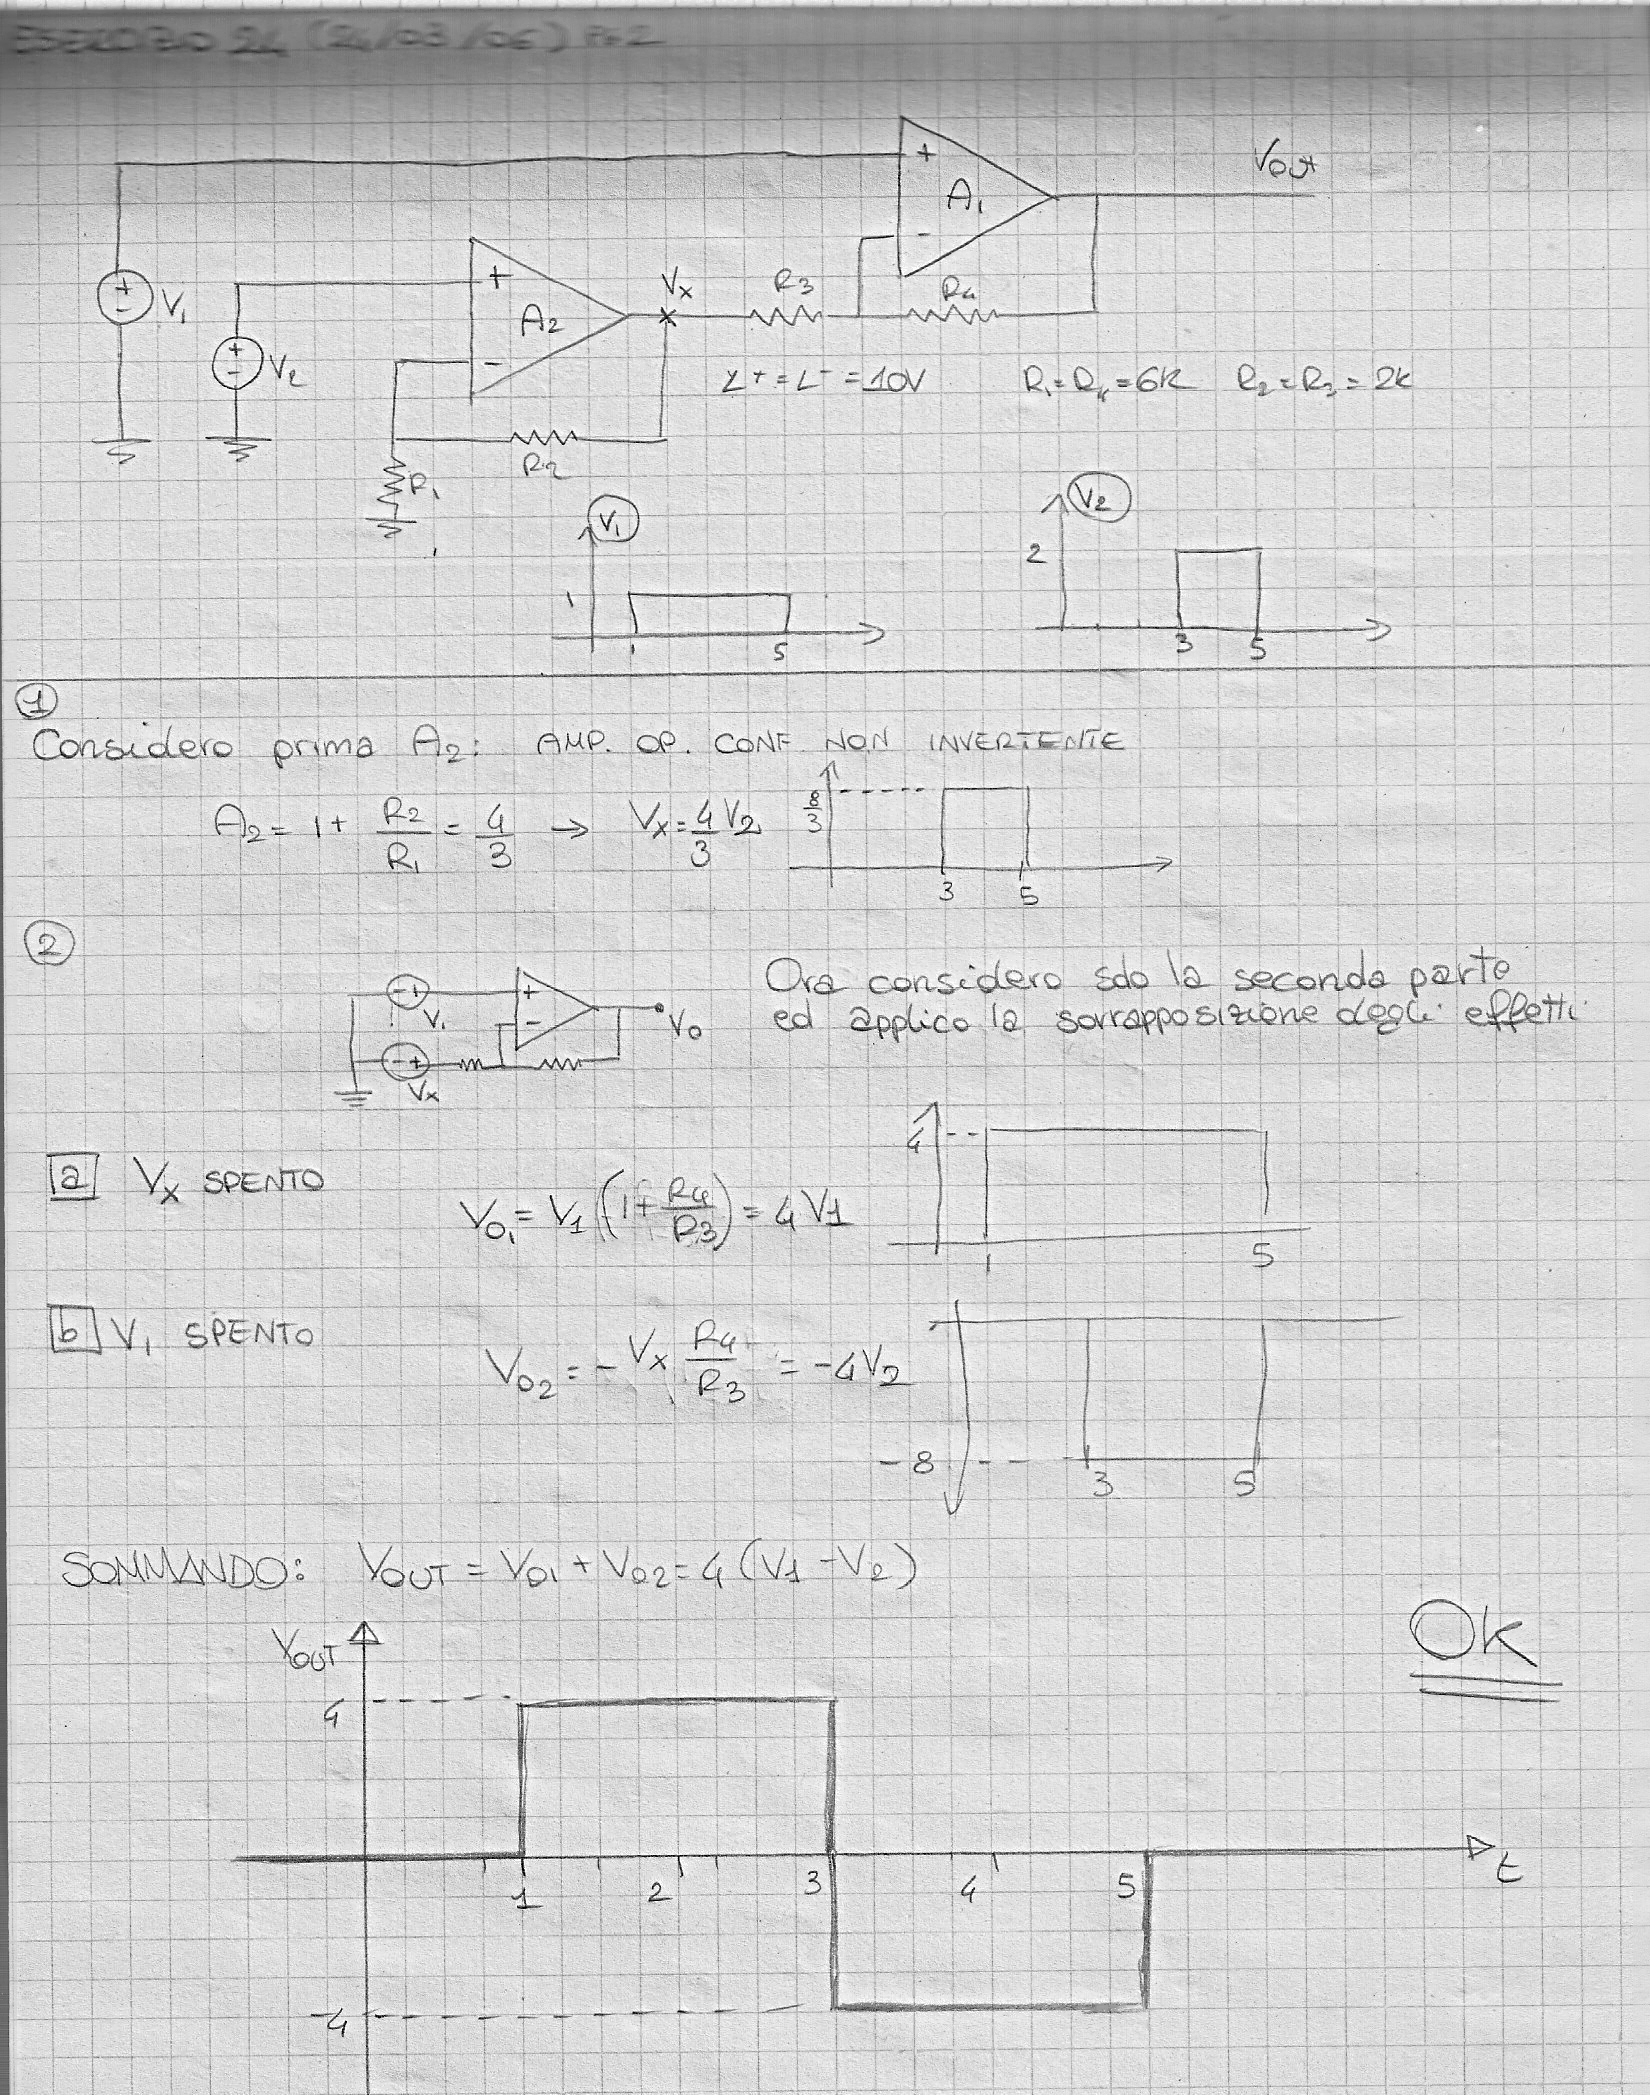 ESERCIZIO 24 (24/03/06) Pt 2
Vout
+
A1
-
V1
V2
+
A2
-
Vx
R3
R4
L+ = L- = 10V R1 = R4 = 6K R2 = R3 = 2K
R2
R1
V1
1
1 5
V2
2
3 5
1
Considero prima A2: AMP. OP. CONF NON INVERTENTE
A2 = 1 + R2/R1 = 4/3 → Vx = 4/3 V2
8/3
3 5
2
V1
Vx
+
-
Vo
Ora considero solo la seconda parte
ed applico la sovrapposizione degli effetti
a Vx SPENTO
Vo1 = V1 (1 + R4/R3) = 4 V1
4
1 5
b V1 SPENTO
Vo2 = - Vx R4/R3 = -4V2
-8
3 5
SOMMANDO: VOUT = Vo1 + Vo2 = 4 (V1 - V2)
OK
VOUT
4
1 2 3 4 5 t
-4